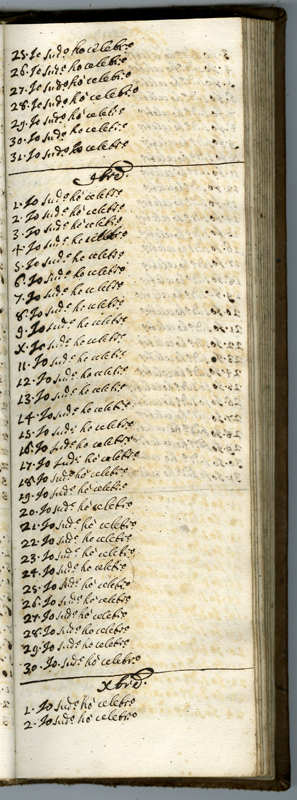 25. Io sud.º hò celebr.º
26. Io sud.º hò celebr.º
27. Io sud.º hò celebr.º
28. Io sud.º hò celebr.º
29. Io sud.º hò celebr.º
30. Io sud.º hò celebr.º
31. Io sud.º hò celebr.º
9bre
1. Io sud.º hò celebr.º
2. Io sud.º hò celebr.º
3. Io sud.º hò celebr.º
4. Io sud.º hò celebr.º
5. Io sud.º hò celebr.º
6. Io sud.º hò celebr.º
7. Io sud.º hò celebr.º
8. Io sud.º hò celebr.º
9. Io sud.º hò celebr.º
X. Io sud.º hò celebr.º
11. Io sud.º hò celebr.º
12. Io sud.º hò celebr.º
13. Io sud.º hò celebr.º
14. Io sud.º hò celebr.º
15. Io sud.º hò celebr.º
16. Io sud.º hò celebr.º
17. Io sud.º hò celebr.º
18. Io sud.º hò celebr.º
19. Io sud.º hò celebr.º
20. Io sud.º hò celebr.º
21. Io sud.º hò celebr.º
22. Io sud.º hò celebr.º
23. Io sud.º hò celebr.º
24. Io sud.º hò celebr.º
25. Io sud.º hò celebr.º
26. Io sud.º hò celebr.º
27. Io sud.º hò celebr.º
28. Io sud.º hò celebr.º
29. Io sud.º hò celebr.º
30. Io sud.º hò celebr.º
Xbre.
1. Io sud.º hò celebr.º
2. Io sud.º hò celebr.º